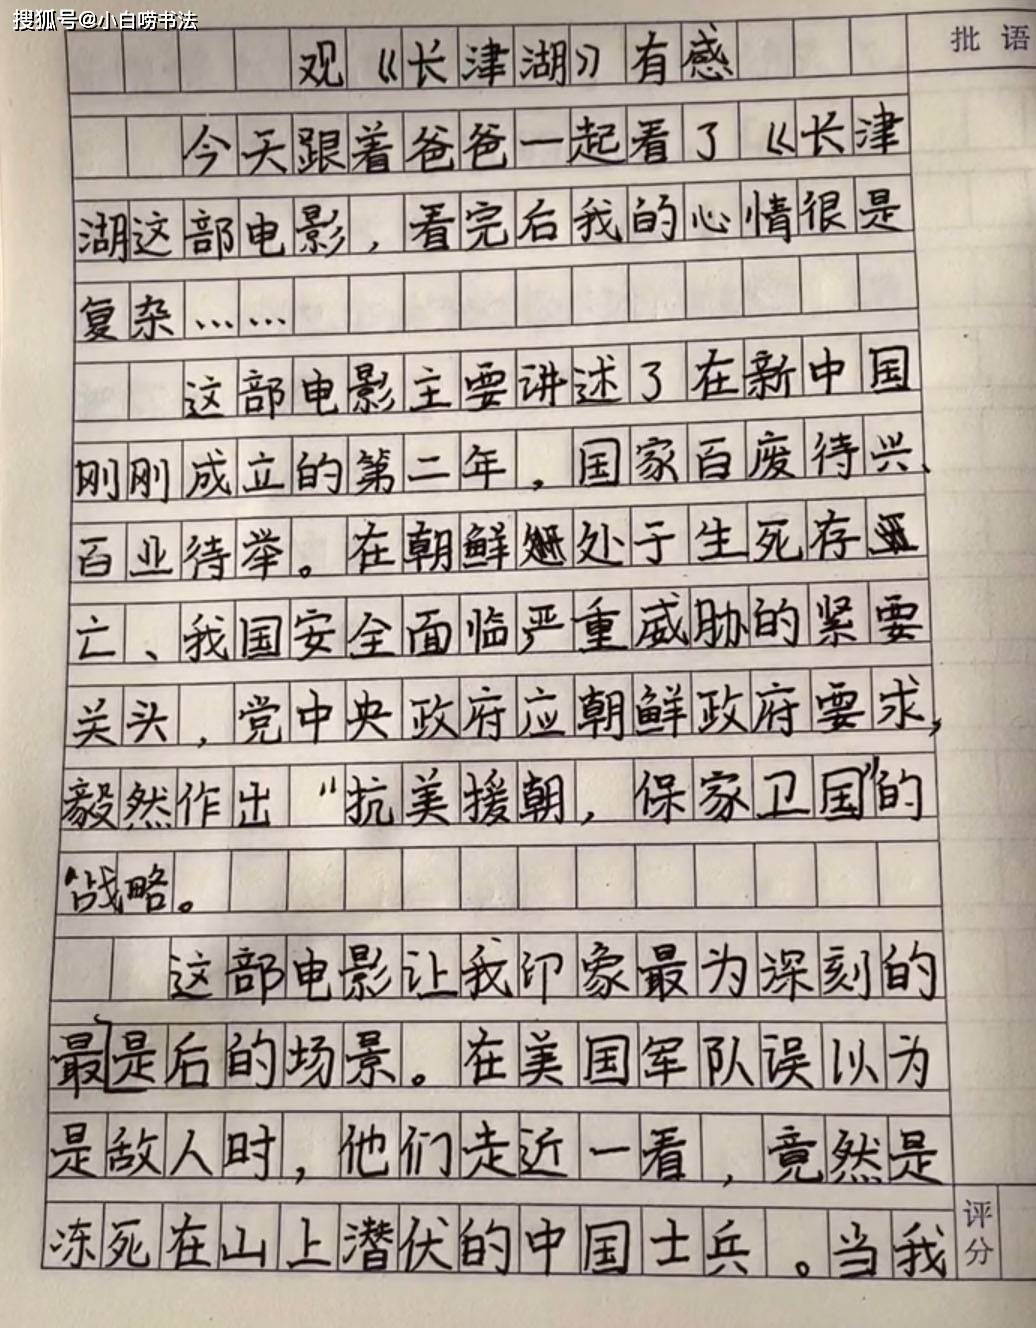 搜狐号@小白唠书法
批 语
观《长津湖》有感
今天跟着爸爸一起看了《长津
湖这部电影，看完后我的心情很是
复杂……
这部电影主要讲述了在新中国
刚刚成立的第二年，国家百废待兴、
百业待举。在朝鲜处于生死存
亡、我国安全面临严重威胁的紧要
关头，党中央政府应朝鲜政府要求，
毅然作出“抗美援朝，保家卫国”的
战略。
这部电影让我印象最为深刻的
最是后的场景。在美国军队误以为
是敌人时，他们走近一看，竟然是
冻死在山上潜伏的中国士兵。当我
评分